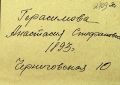 Герасимова
Анастасия Стефановна
1897г.
Черниговская 10